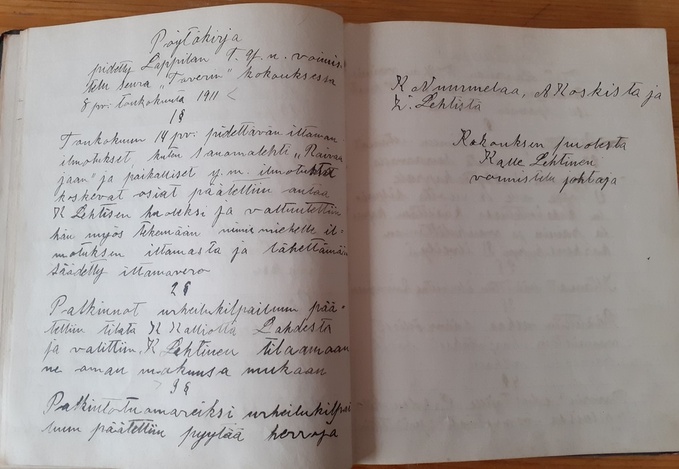 Pöytäkirja
pidetty Lappilan T. Y. n. voimis-
telu seura "Toverin" kokouksessa
8 pv: toukokuuta 1911
1 §
Toukokuun 14 pv: pidettävän iltaman
ilmotukset, kuten sanomalehti "Raivaa-
jaan" ja paikalliset y. m. ilmotukset
koskevat osiat päätettiin antaa
K Lehtisen huoleksi ja valtuutettiin
hän myös tekemään nimismiehelle il-
motuksen iltamasta ja lähettämään
säädetty iltamavero
2 §
Palkinnot urheilukilpailuun pää-
tettiin tilata K Kalliolta Lahdesta
ja valittiin K Lehtinen tilaamaan
ne oman makunsa mukaan
3 §
Palkintotuomareiksi urheilukilpai
luun päätettiin pyytää herroja
K Nummelaa, A Koskista ja
Lehtistä
Kokouksen puolesta
Kalle Lehtinen
voimistelu johtaja